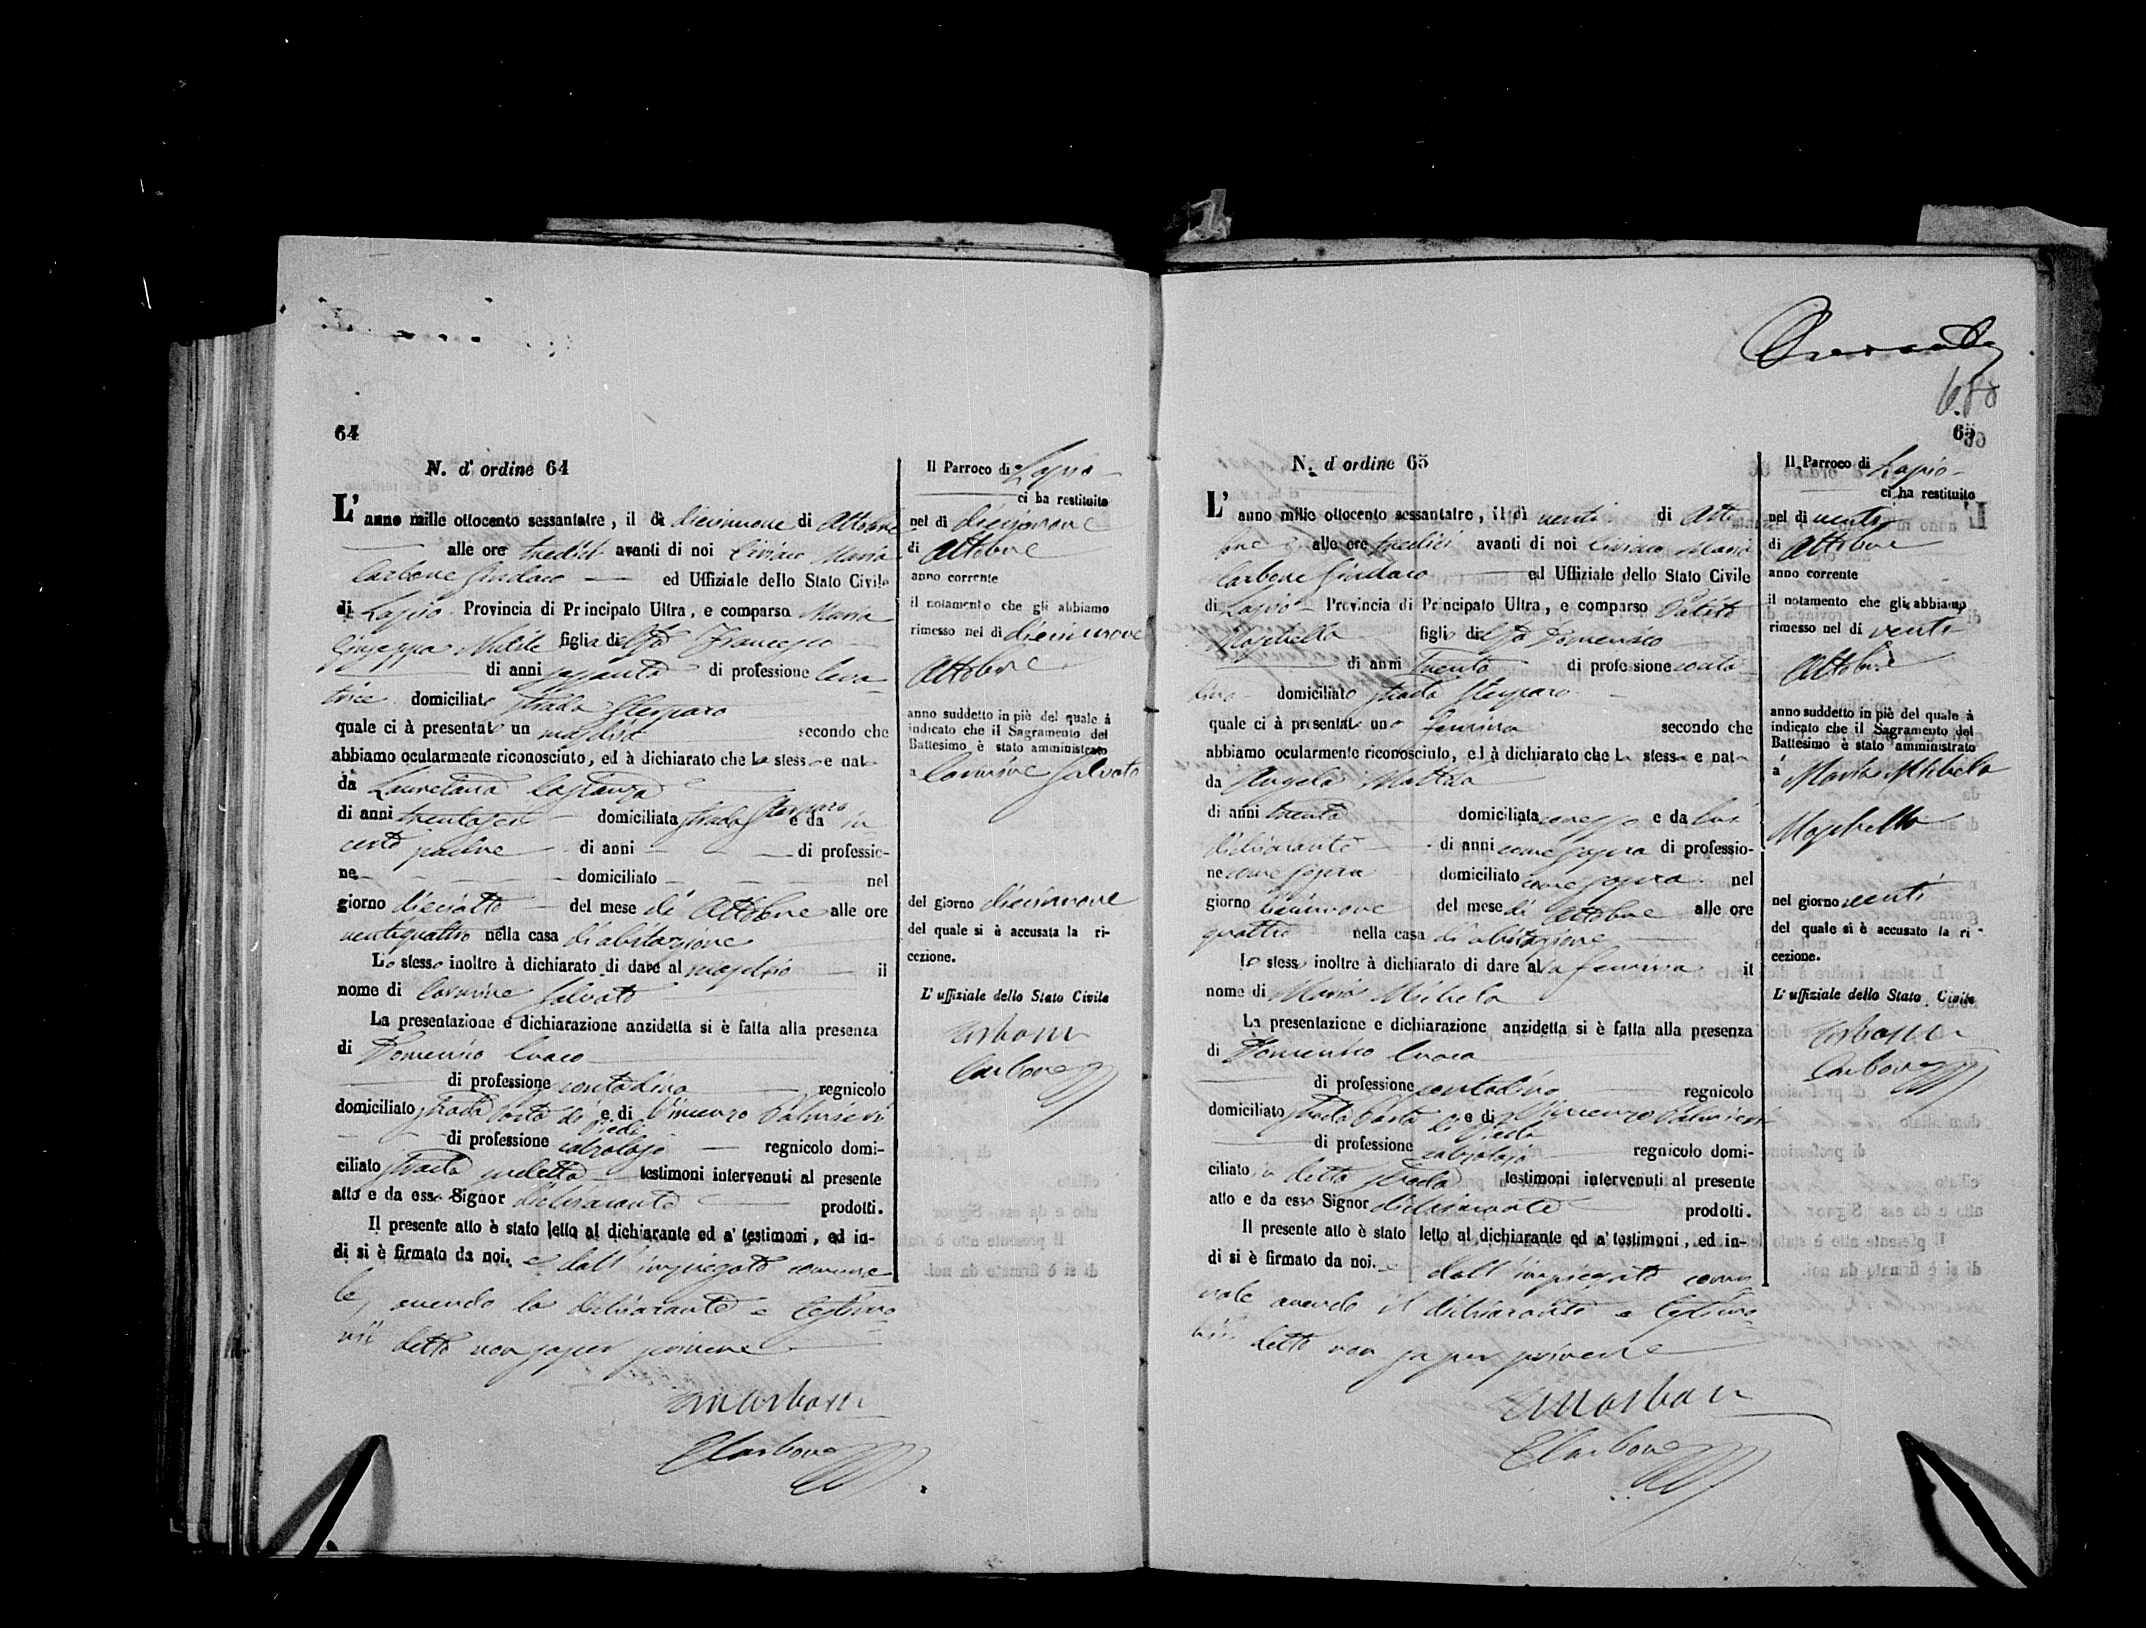 64
N. d' ordine 64
L' anno mille ottocento sessantatre, il dì diecinnove di Ottobre
alle ore tredici avanti di noi Ciriaco Maria
Carbone Sindaco ed Uffiziale dello Stato Civile
di Lapio Provincia di Principato Ultra, e comparsa Maria
Giuseppa figlia di Francesco
di anni sessanta di professione leva-
trice domiciliata strada
quale ci à presentato un maschio secondo che
abbiamo ocularmente riconosciuto, ed à dichiarato che lo stesso e nato
da Lauretana Costanza
di anni trentasei domiciliata strada e da in
certo padre di anni di professio-
ne domiciliato nel
giorno dieciotto del mese di Ottobre alle ore
ventiquattro nella casa di abitazione
Lo stesso inoltre à dichiarato di dare al maschio il
nome di Carmine Salvato
La presentazione e dichiarazione anzidetta si è fatta alla presenza
di Domenico
di professione contadino regnicolo
domiciliato strada Porta di e di Vincenzo
Piedi
di professione calzolajo regnicolo domi-
ciliato strada testimoni intervenuti al presente
atto e da esso Signor dichiarante prodotti.
Il presente atto è stato letto al dichiarante ed a' testimoni, ed in-
di si è firmato da noi. e dall' impiegato comuna-
le, avendo la dichiarante e testimo-
nii detto non saper scrivere
Carbone
Il Parroco di Lapio
ci ha restituito
nel di diecinnove
di Ottobre
anno corrente
il notamento che gli abbiamo
rimesso nel di diecinnove
Ottobre
anno suddetto in piè del quale à
indicato che il Sagramento del
Battesimo è stato amministrato
a Carmine Salvato
del giorno diecinnove
del quale si è accusata la ri-
cezione.
L' uffiziale dello Stato Civile
Carbone
65
N. d' ordine 65
L' anno mille ottocento sessantatre, il dì venti di Otto
bre alle ore tredici avanti di noi Ciriaco Maria
Carbone Sindaco ed Uffiziale dello Stato Civile
di Lapio Provincia di Principato Ultra, e comparso
figlio di Domenico
di anni trenta di professione conta
dino domiciliato strada
quale ci à presentato una femina secondo che
abbiamo ocularmente riconosciuto, ed à dichiarato che la stessa e nata
da Angela
di anni trenta domiciliata e da lui
dichiarante di anni come sopra di professio-
ne come sopra domiciliato come sopra nel
giorno diecinnove del mese di Ottobre alle ore
quattro nella casa di abitazione
Lo stesso inoltre à dichiarato di dare alla femina il
nome di Maria Michela
La presentazione e dichiarazione anzidetta si è fatta alla presenza
di Domenico
di professione contadino regnicolo
domiciliato strada Porta di e di Vincenzo
di professione calzolajo regnicolo domi-
ciliato in detta strada testimoni intervenuti al presente
atto e da esso Signor dichiarante prodotti.
Il presente atto è stato letto al dichiarante ed a' testimoni, ed in-
di si è firmato da noi. e dall' impiegato comu
nale avendo il dichiarante e testimo-
nii detto non saper scrivere
Carbone
Il Parroco di Lapio
ci ha restituito
nel di venti
di Ottobre
anno corrente
il notamento che gli abbiamo
rimesso nel di venti
Ottobre
anno suddetto in piè del quale à
indicato che il Sagramento del
Battesimo è stato amministrato
a Maria Michela
nel giorno venti
del quale si è accusato la ri-
cezione.
L' uffiziale dello Stato Civile
Carbone